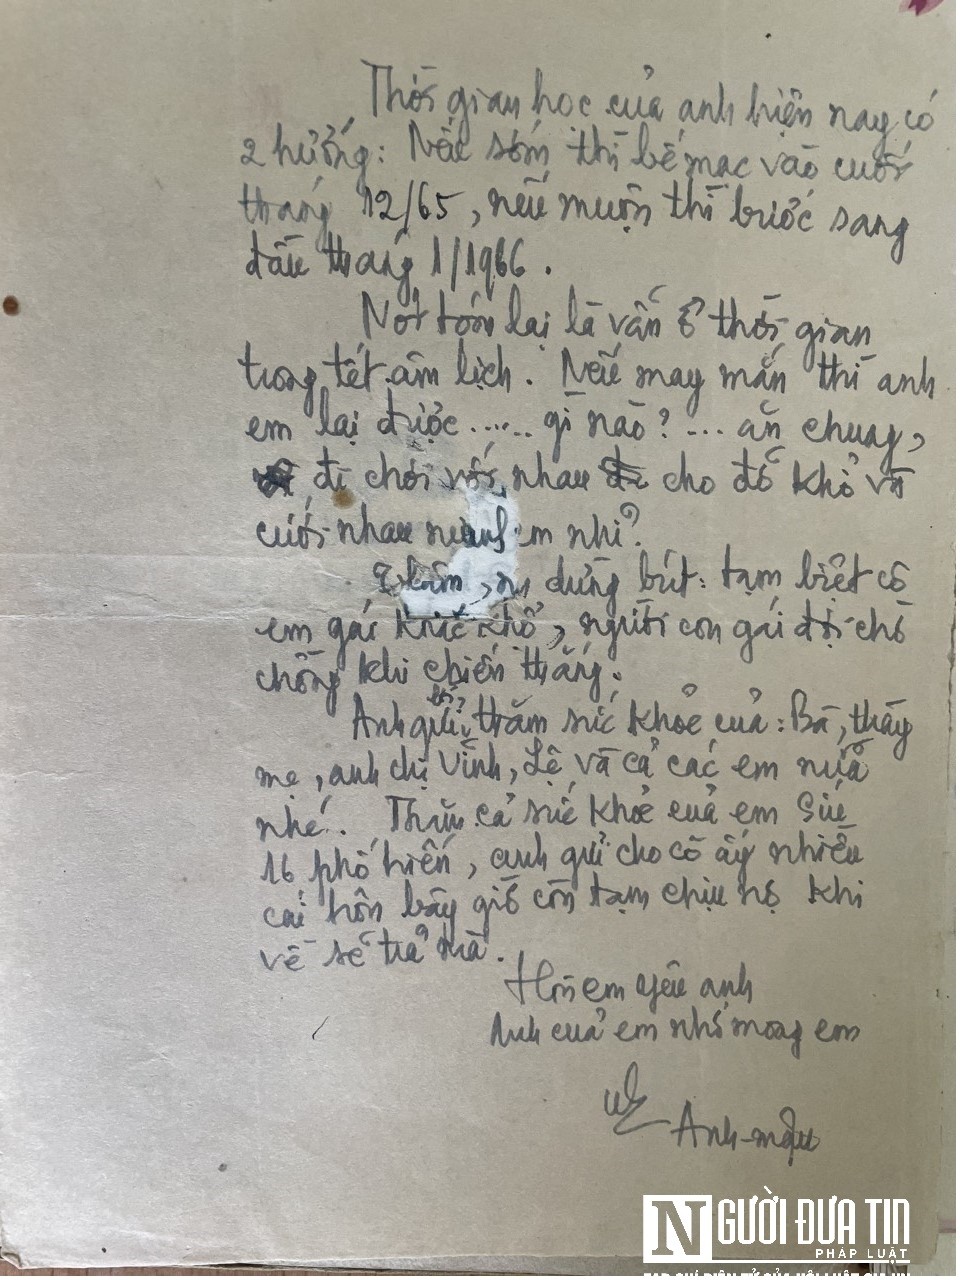 Thời gian học của anh hiện nay có
2 hướng: Nếu sớm thì bế mạc vào cuối
tháng 12/65, nếu muộn thì bước sang
đầu tháng 1/1966.
Nói tóm lại là vẫn ở thời gian
trong tết âm lịch. Nếu may mắn thì anh
em lại được ...... gì nào? ... ăn chung,
đi chơi với nhau cho đỡ khổ và
cưới nhau em nhỉ?
dừng bút: tạm biệt cô
em gái khổ, người con gái đợi chờ
chồng khi chiến thắng.
Anh gửi thăm sức khỏe của: Bà, thầy
mẹ, anh chị Vinh, Lệ và cả các em nữa
nhé. Thăm cả sức khỏe của em
16 phố hiến, anh gửi cho cô ấy nhiều
cái hôn bây giờ còn tạm chịu nợ khi
về sẽ trả mà.
Hôn em yêu anh
Anh của em nhớ mong em
Anh-mậu
NGƯỜI ĐƯA TIN
PHÁP LUẬT